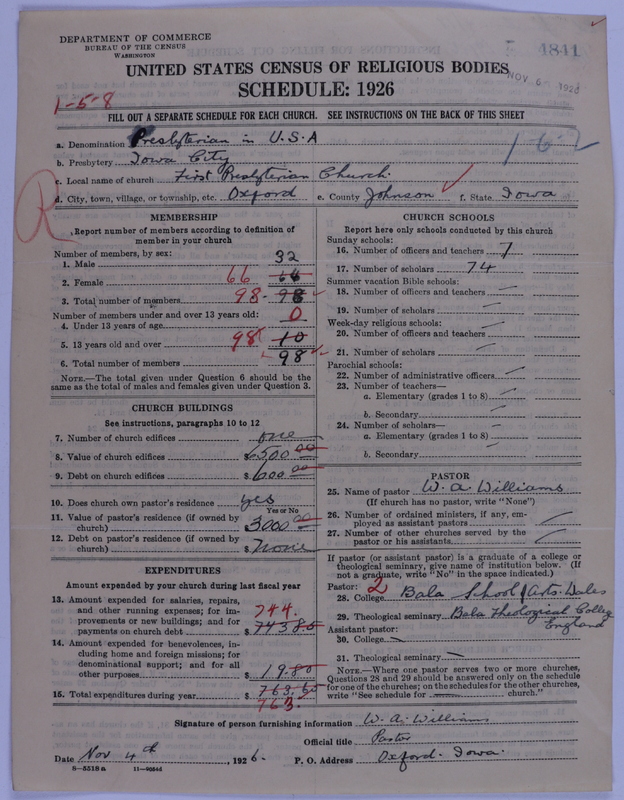 DEPARTMENT OF COMMERCE
BUREAU OF THE CENSUS
WASHINGTON
4841
UNITED STATES CENSUS OF RELIGIOUS BODIES
NOV 6 1926
SCHEDULE: 1926
1-5-8
FILL OUT A SEPARATE SCHEDULE FOR EACH CHURCH. SEE INSTRUCTIONS ON THE BACK OF THIS SHEET
a. Denomination Presbyterian in U.S.A
b. Presbytery Iowa City
c. Local name of church First Presbyterian Church.
d. City, town, village, or township, etc. Oxford e. County Johnson f. State Iowa
R
MEMBERSHIP
Report number of members according to definition of
member in your church
Number of members, by sex:
1. Male 32
2. Female 66 66
3. Total number of members 98 98
Number of members under and over 13 years old:
4. Under 13 years of age 0
5. 13 years old and over 98 10
6. Total number of members 98
NOTE.—The total given under Question 6 should be
same as the total of males and females given under Question 3.
CHURCH BUILDINGS
See instructions, paragraphs 10 to 12
7. Number of church edifices one
8. Value of church edifices $ 6500 00
9. Debt on church edifices $ 600 00
10. Does church own pastor's residence yes
Yes or No
11. Value of pastor's residence (if owned by
church) $ 3000 00
12. Debt on pastor's residence (if owned by
church) $ None
EXPENDITURES
Amount expended by your church during last fiscal year
13. Amount expended for salaries, repairs,
and other running expenses; for im-
provements or new buildings; and for
payments on church debt 744. $ 743 80
14. Amount expended for benevolences, in-
cluding home and foreign missions; for
denominational support; and for all
other purposes $ 19.80
15. Total expenditures during year $ 763.60
763.
CHURCH SCHOOLS
Report here only schools conducted by this church
Sunday schools:
16. Number of officers and teachers 7
17. Number of scholars 74
Summer vacation Bible schools:
18. Number of officers and teachers
19. Number of scholars
Week-day religious schools:
20. Number of officers and teachers
21. Number of scholars
Parochial schools:
22. Number of administrative officers
23. Number of teachers—
a. Elementary (grades 1 to 8)
b. Secondary
24. Number of scholars—
a. Elementary (grades 1 to 8)
b. Secondary
PASTOR
25. Name of pastor W. A. Williams
(If church has no pastor, write "None")
26. Number of ordained ministers, if any, em-
ployed as assistant pastors
27. Number of other churches served by the
pastor or his assistants
If pastor (or assistant pastor) is a graduate of a college or
theological seminary, give name of institution below. (If
not a graduate, write "No" in the space indicated.)
Pastor: 2
28. College Bala School Arts. Wales
29. Theological seminary Bala Theological College
England
Assistant pastor:
30. College
31. Theological seminary
NOTE.—Where one pastor serves two or more churches,
Questions 28 and 29 should be answered only on the schedule
for one of the churches; on the schedules for the other churches,
write "See schedule for church."
Signature of person furnishing information W. A. Williams
Official title Pastor
Date Nov 4th, 1926. P. O. Address Oxford. Iowa.
8—5518 a 11—9054d